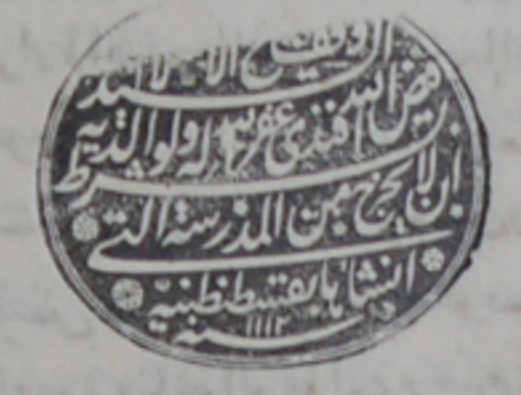 شيخ الاسلام السيد
فيض الله افندى غفر الله له ولوالديه
بشرط ان لا يخرج من المدرسة التى
انشاها بقسطنطنيه
سنه ١١١٢